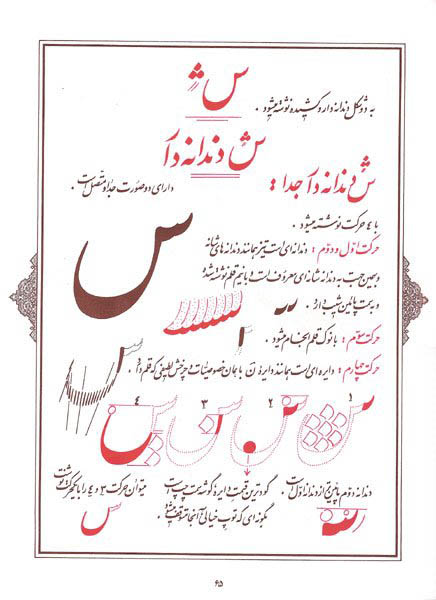 س ش
به دو شکل دندانه دار و کشیده نوشته میشود .
ش دندانه دار
ش دندانه دار جدا :
دارای دو صورت جدا و متصل است .
با ٤ حرکت نوشته میشود .
حرکت اول و دوم : دندانه ای است تیز همانند دندانه های شانه
و بهمین جهت به دندانه شانه ای معروف است و با نیم قلم نوشته شده
و بسمت پائین شیب دارد .
حرکت سوم : با نوک قلم انجام میشود .
حرکت چهارم : دایره ای است همانند دایره ن با همان خصوصیات و چرخش لطیفی که قلم دارد .
۱ ۲ ۳ ٤
دندانه دوم پائین تر از دندانه اول است .
گودترین قسمت دایره گوشه سمت چپ است
بگونه ای که توپ خیالی آنجا متوقف میشود
میتوان حرکت ۳ و ٤ را با یک حرکت نوشت
س
۶۵